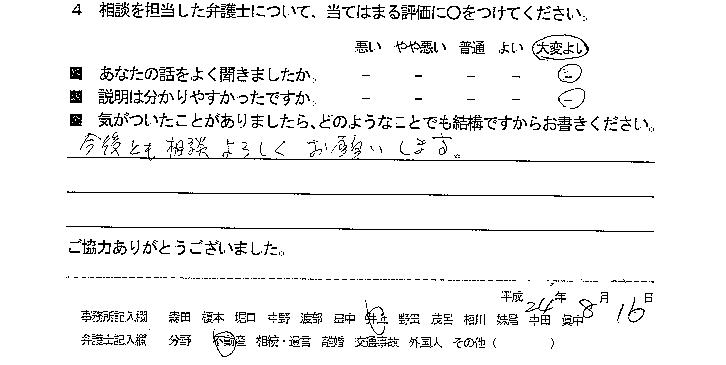 4 相談を担当した弁護士について、当てはまる評価に○をつけてください。
悪い やや悪い 普通 よい 大変よい
あなたの話をよく聞きましたか。 － － － － －
説明は分かりやすかったですか。 － － － － －
気がついたことがありましたら、どのようなことでも結構ですからお書きください。
今後とも相談よろしくお願いします。
ご協力ありがとうございました。
平成 24 年 8 月 16 日
事務所記入欄 森田 榎本 堀口 中野 渡部 畠中 井丘 野田 茂呂 相川 妹尾 中田 眞中
弁護士記入欄 分野 不動産 相続・遺言 離婚 交通事故 外国人 その他（ ）